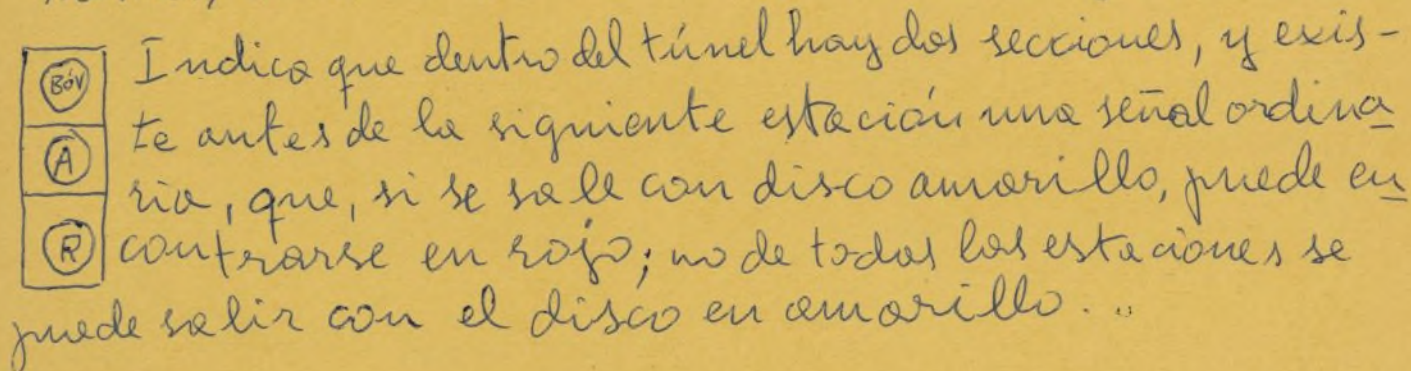 BÓV Indica que dentro del túnel hay dos secciones, y exis-
A te antes de la siguiente estación una señal ordina
ria, que, si se sale con disco amarillo, puede en
R contrarse en rojo; no de todas las estaciones se
puede salir con el disco en amarillo..